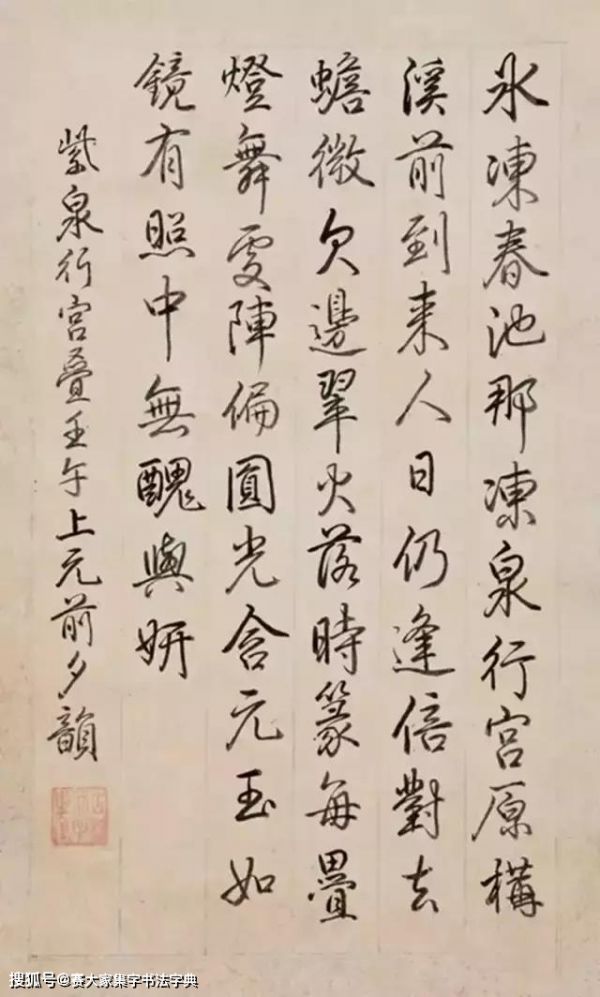 氷凍春池那凍泉行宮原構
溪前到来人日仍逢倍對去
蟾微欠邊翠火落時篆每疊
燈舞雯陣偏圓光含元玉如
鏡有照中無醜與妍
紫泉行宮叠壬午上元前夕韻
搜狐号@赛大家集字书法字典